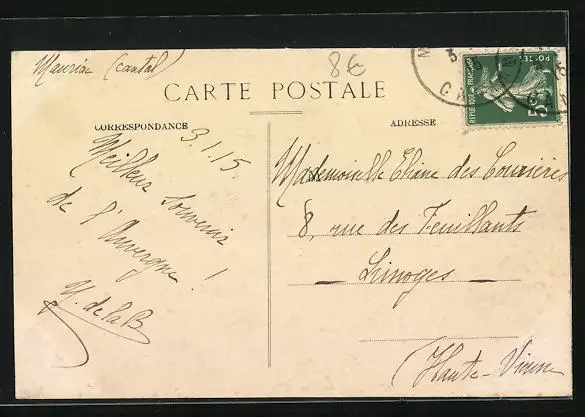 Mauriac (Cantal)
8€
CARTE POSTALE
CORRESPONDANCE
ADRESSE
3.1.15.
Meilleur souvenir
de l'Auvergne !
H. de la B
Mademoiselle Eliane des Courières
8, rue des Feuillants
— Limoges —
(Haute-Vienne
REPUBLIQUE FRANÇAISE
POSTES
5